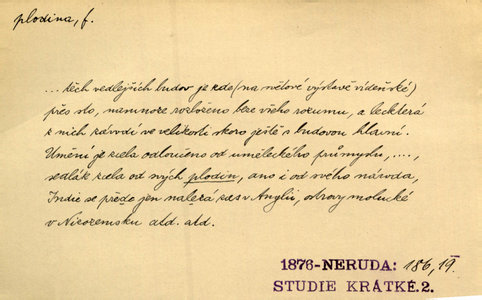 plodina, f.
...těch vedlejších budov je zde (na světové výstavě vídeňské)
přes sto, namnoze rozloženo beze všeho rozumu, a leckterá
z nich závodí ve velikosti skoro ještě s budovou hlavní.
Umění je zcela odloučeno od uměleckého průmyslu, ....,
sedlák zcela od svých plodin, ano i od svého národa,
Indie se přede jen nalezá zas v Anglii, ostrovy molucké
v Nizozemsku atd. atd.
1876-NERUDA: 186, 19
STUDIE KRÁTKÉ.2.